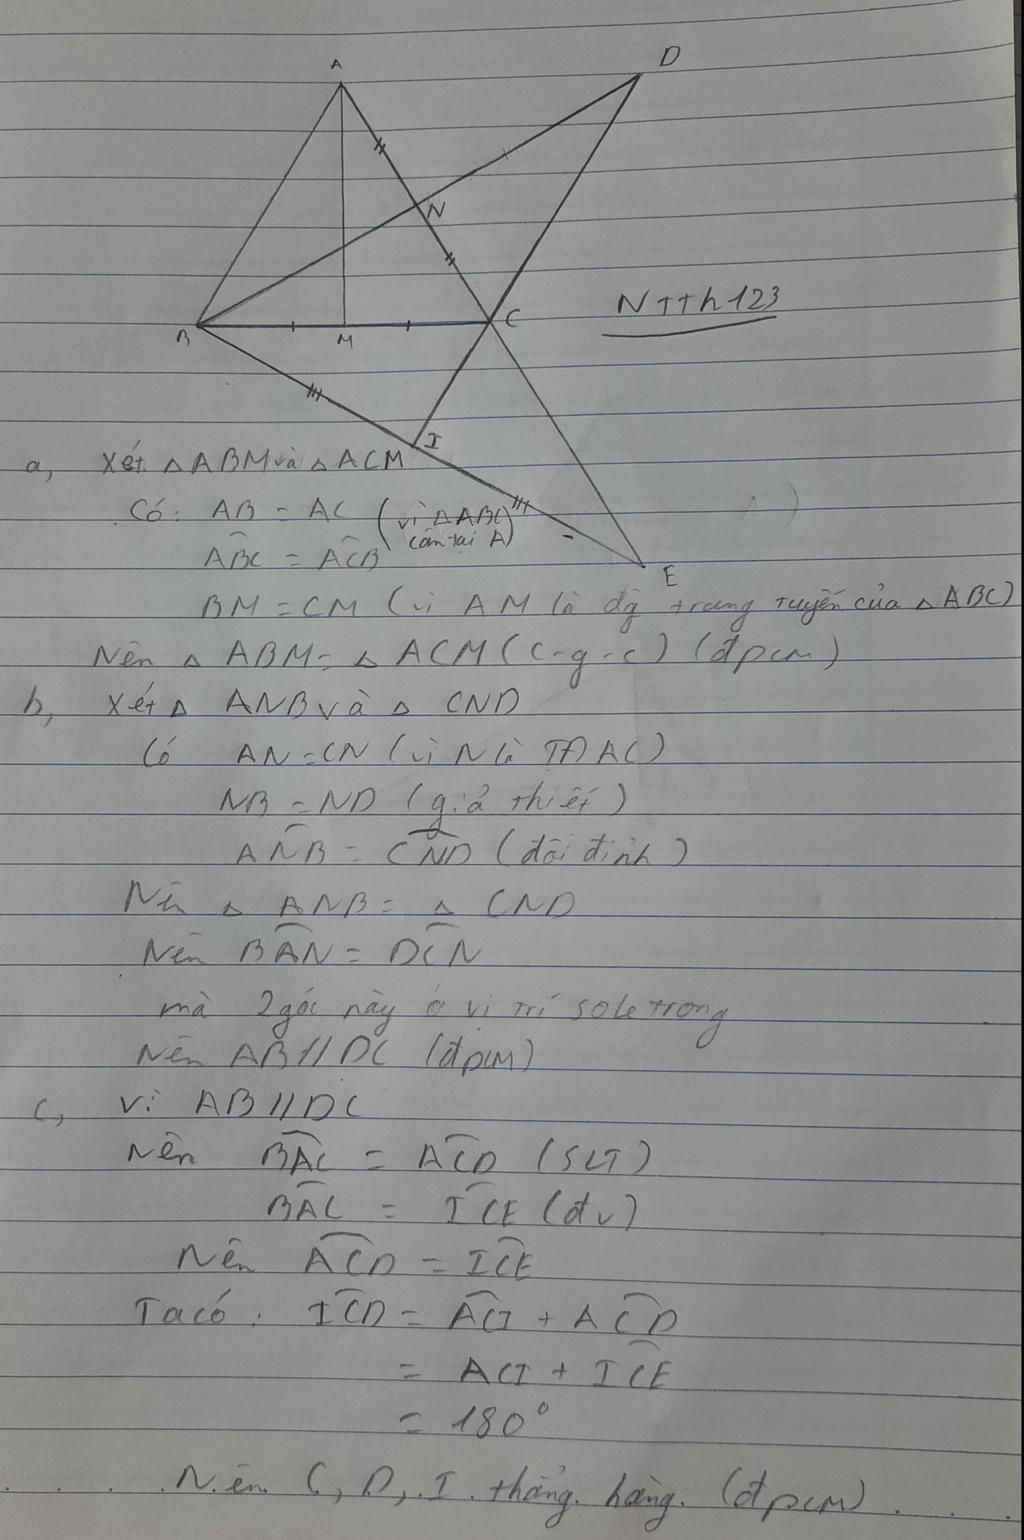 A
D
N
B
M
C
NTTh123
I
E
a, Xét △ABM và △ACM
Có: AB = AC (vì △ABC cân tại A)
ABC = ACB
BM = CM (vì AM là đg trung tuyến của △ABC)
Nên △ ABM = △ ACM (c-g-c) (đpcm)
b, Xét △ ANB và △ CND
Có AN = CN (vì N là TĐ AC)
NB = ND (giả thiết)
ANB = CND (đối đỉnh)
Nên △ ANB = △ CND
Nên BAN = DCN
mà 2 góc này ở vị trí sole trong
Nên AB // DC (đpcm)
c, Vì AB // DC
Nên BAC = ACD (SLT)
BAC = ICE (đv)
Nên ACD = ICE
Ta có: ICD = ACI + ACD
= ACI + ICE
= 180°
Nên C, D, I thẳng hàng. (đpcm)